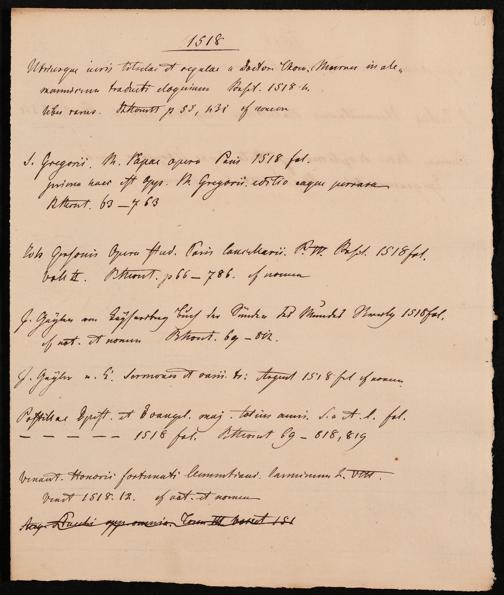 1518
Utriusque iuris tituli et regulae a Doctore Thom. Murner in ale-
mannicum traducti eloquium Basil. 1518. 4.
liber rarus. p. 55, of nomen
S. Gregorii M. Papae opera Paris 1518 fol.
prima haec est opp. M. Gregorii editio eaque perrara
63 – 763
Joh. Gersonis Opera Stud. Paris Cancellarii. P. III. Basil. 1518 fol.
Voll II. p 66 – 786. of nomen
J. Geyler von Keysersberg Buch der Sünden des Mundes Strasb 1518 fol.
of not. et nomen 69 – 812.
J. Geyler v. K. Sermones et varii tr. August 1518 fol of nomen
Postillae Epist. et Evangel. maj. totius anni. S. a. et l. fol.
– – – – – 1518 fol. 69 – 818, 819
Venant. Honorii fortunati Clementiani Carminum L. VIII.
Venet 1518. 12. of not. et nomen
opp. omnia. Tom III 151